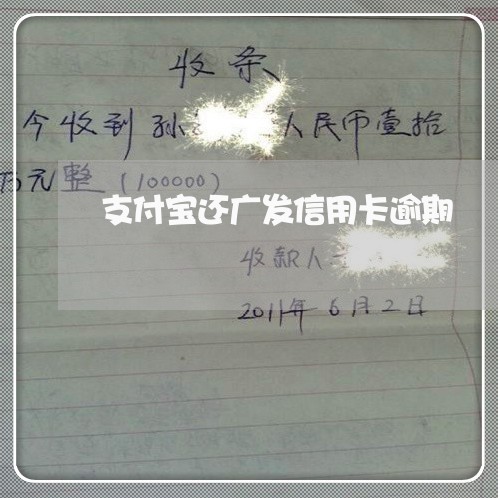 收条
今收到孙 人民币壹拾
万元整（100000）
支付宝还广发信用卡逾期
收款人
2011年6月2日